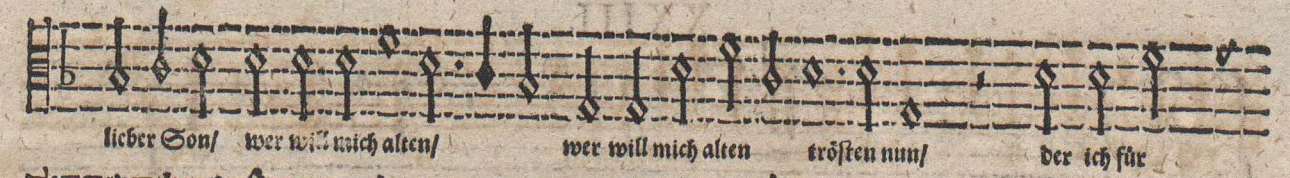 lieber Son/ wer will mich alten/ wer will mich alten trösten nun/ der ich für